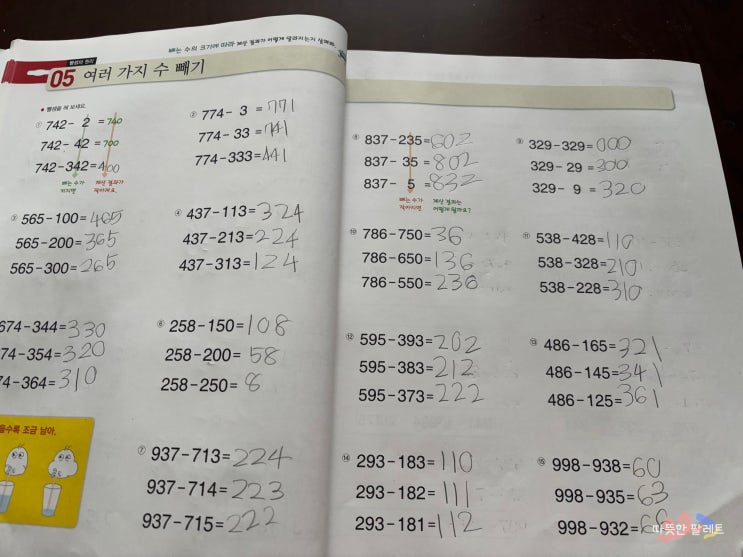 빼는 수의 크기에 따라 계산 결과가 어떻게 달라지는지 살펴봐요.
뺄셈의 원리
05 여러 가지 수 빼기
● 뺄셈을 해 보세요.
① 742- 2 =740
742- 42 =700
742-342=400
빼는 수가 커지면
계산 결과가 작아져요.
② 774- 3 =771
774- 33 =741
774-333=441
③ 565-100=465
565-200=365
565-300=265
④ 437-113=324
437-213=224
437-313=124
674-344=330
74-354=320
74-364=310
⑥ 258-150=108
258-200= 58
258-250= 8
을수록 조금 남아.
⑦ 937-713=224
937-714=223
937-715=222
⑧ 837-235=602
837- 35 =802
837- 5 =832
빼는 수가 작아지면
계산 결과는 어떻게 될까요?
⑨ 329-329=000
329- 29 =300
329- 9 =320
⑩ 786-750=36
786-650=136
786-550=236
⑪ 538-428=110
538-328=210
538-228=310
⑫ 595-393=202
595-383=212
595-373=222
⑬ 486-165=321
486-145=341
486-125=361
⑭ 293-183=110
293-182=111
293-181=112
⑮ 998-938=60
998-935=63
998-932=
따뜻한 팔레트